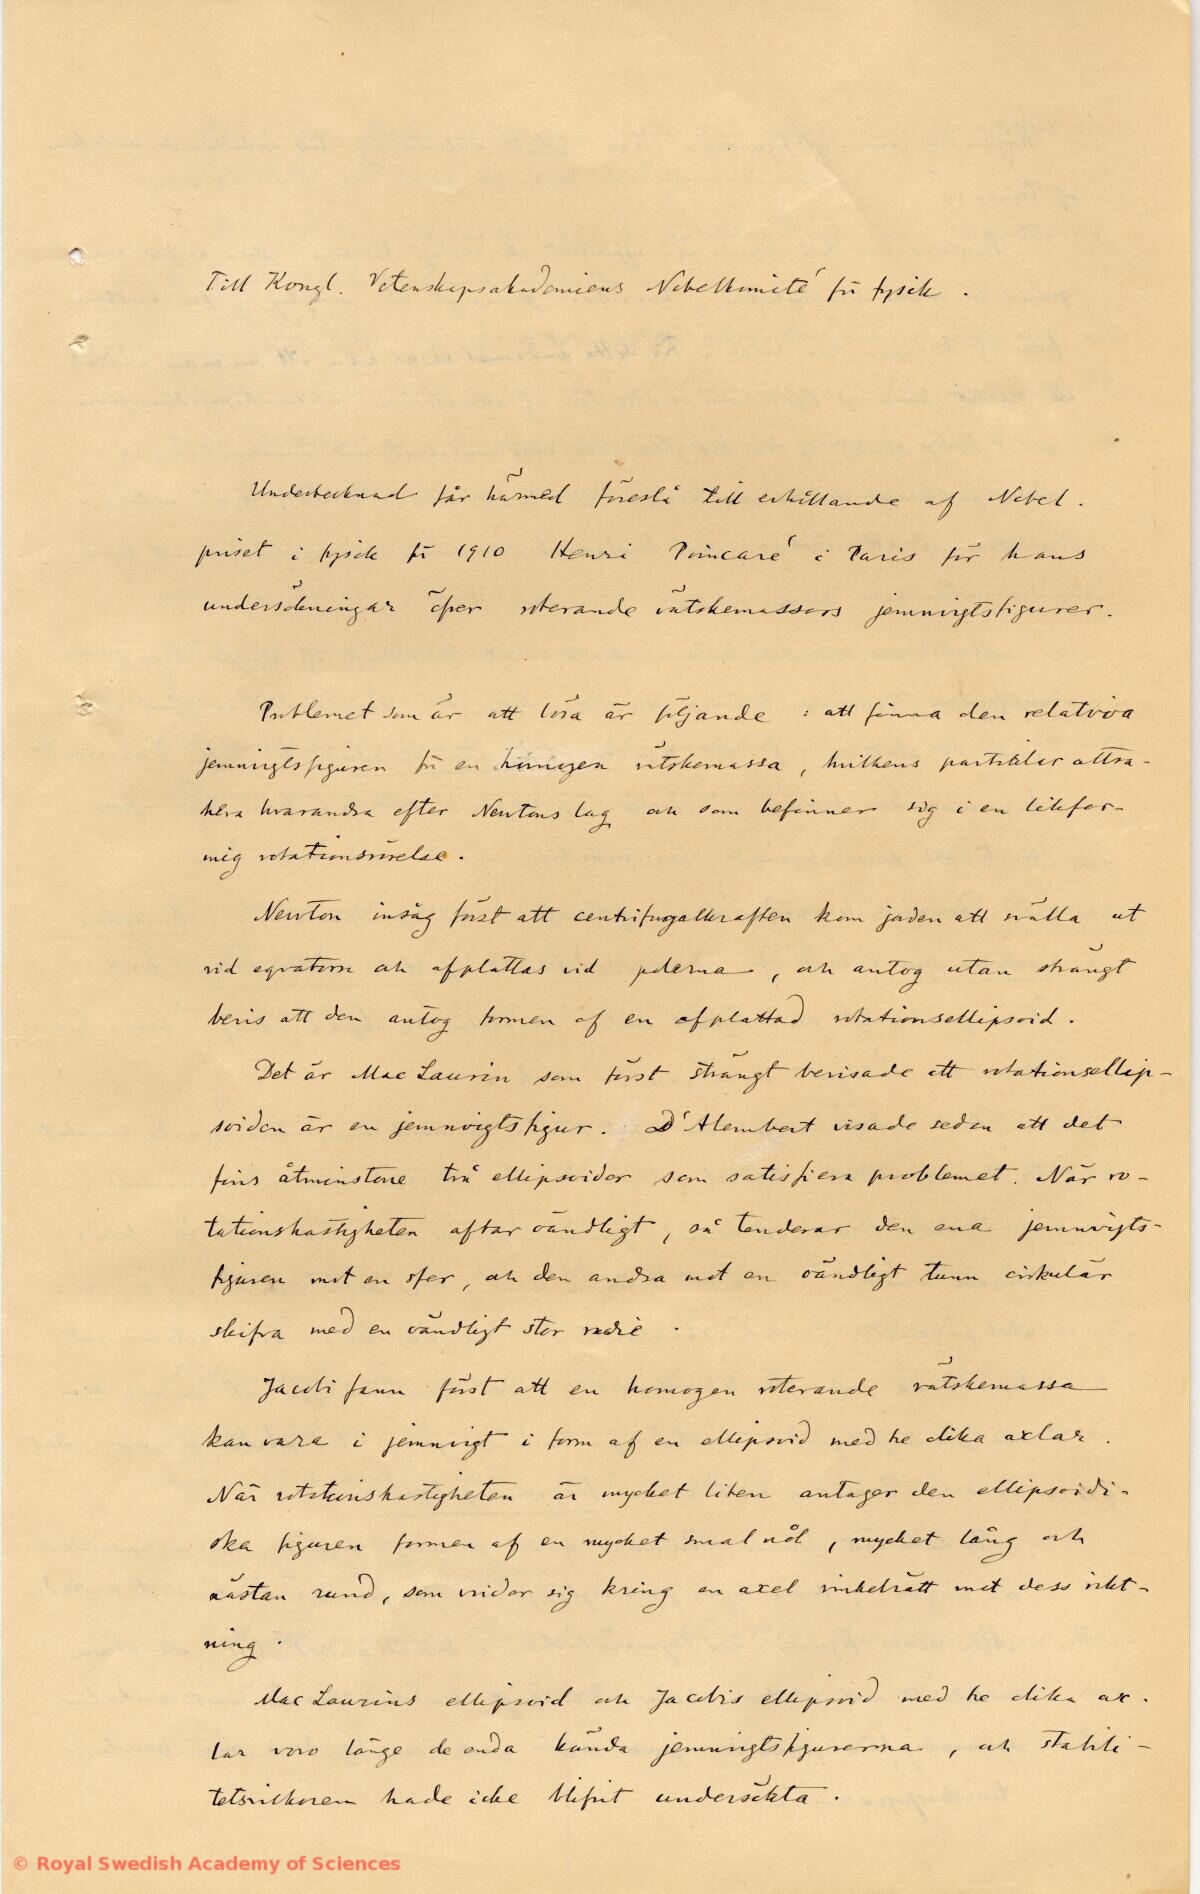 Till Kongl. Vetenskapsakademiens Nobelkomité för fysik.
Undertecknad får härmed föreslå till erhållande af Nobel-
priset i fysik för 1910 Henri Poincaré i Paris för hans
undersökningar öfver roterande vätskemassors jemnvigtsfigurer.
Problemet som är att lösa är följande : att finna den relativa
jemnvigtsfiguren för en homogen vätskemassa, hvilkens partiklar attra-
hera hvarandra efter Newtons lag och som befinner sig i en likfor-
mig rotationsrörelse.
Newton insåg först att centrifugalkraften kom jorden att svälla ut
vid eqvatorn och afplattas vid polerna, och antog utan strängt
bevis att den antog formen af en afplattad rotationsellipsoid.
Det är Mac Laurin som först strängt bevisade att rotationsellip-
soiden är en jemnvigtsfigur. D'Alembert visade sedan att det
fins åtminstone två ellipsoider som satisfiera problemet. När ro-
tationshastigheten aftar oändligt, så tenderar den ena jemnvigts-
figuren mot en sfer, och den andra mot en oändligt tunn cirkulär
skifva med en oändligt stor radie.
Jacobi fann först att en homogen roterande vätskemassa
kan vara i jemnvigt i form af en ellipsoid med tre olika axlar.
När rotationshastigheten är mycket liten antager den ellipsoidi-
ska figuren formen af en mycket smal nål, mycket lång och
nästan rund, som vrider sig kring en axel vinkelrätt mot dess rikt-
ning.
Mac Laurins ellipsoid och Jacobis ellipsoid med tre olika ax-
lar voro länge de enda kända jemnvigtsfigurerna, och stabili-
tetsvilkoren hade icke blifvit undersökta.
© Royal Swedish Academy of Sciences